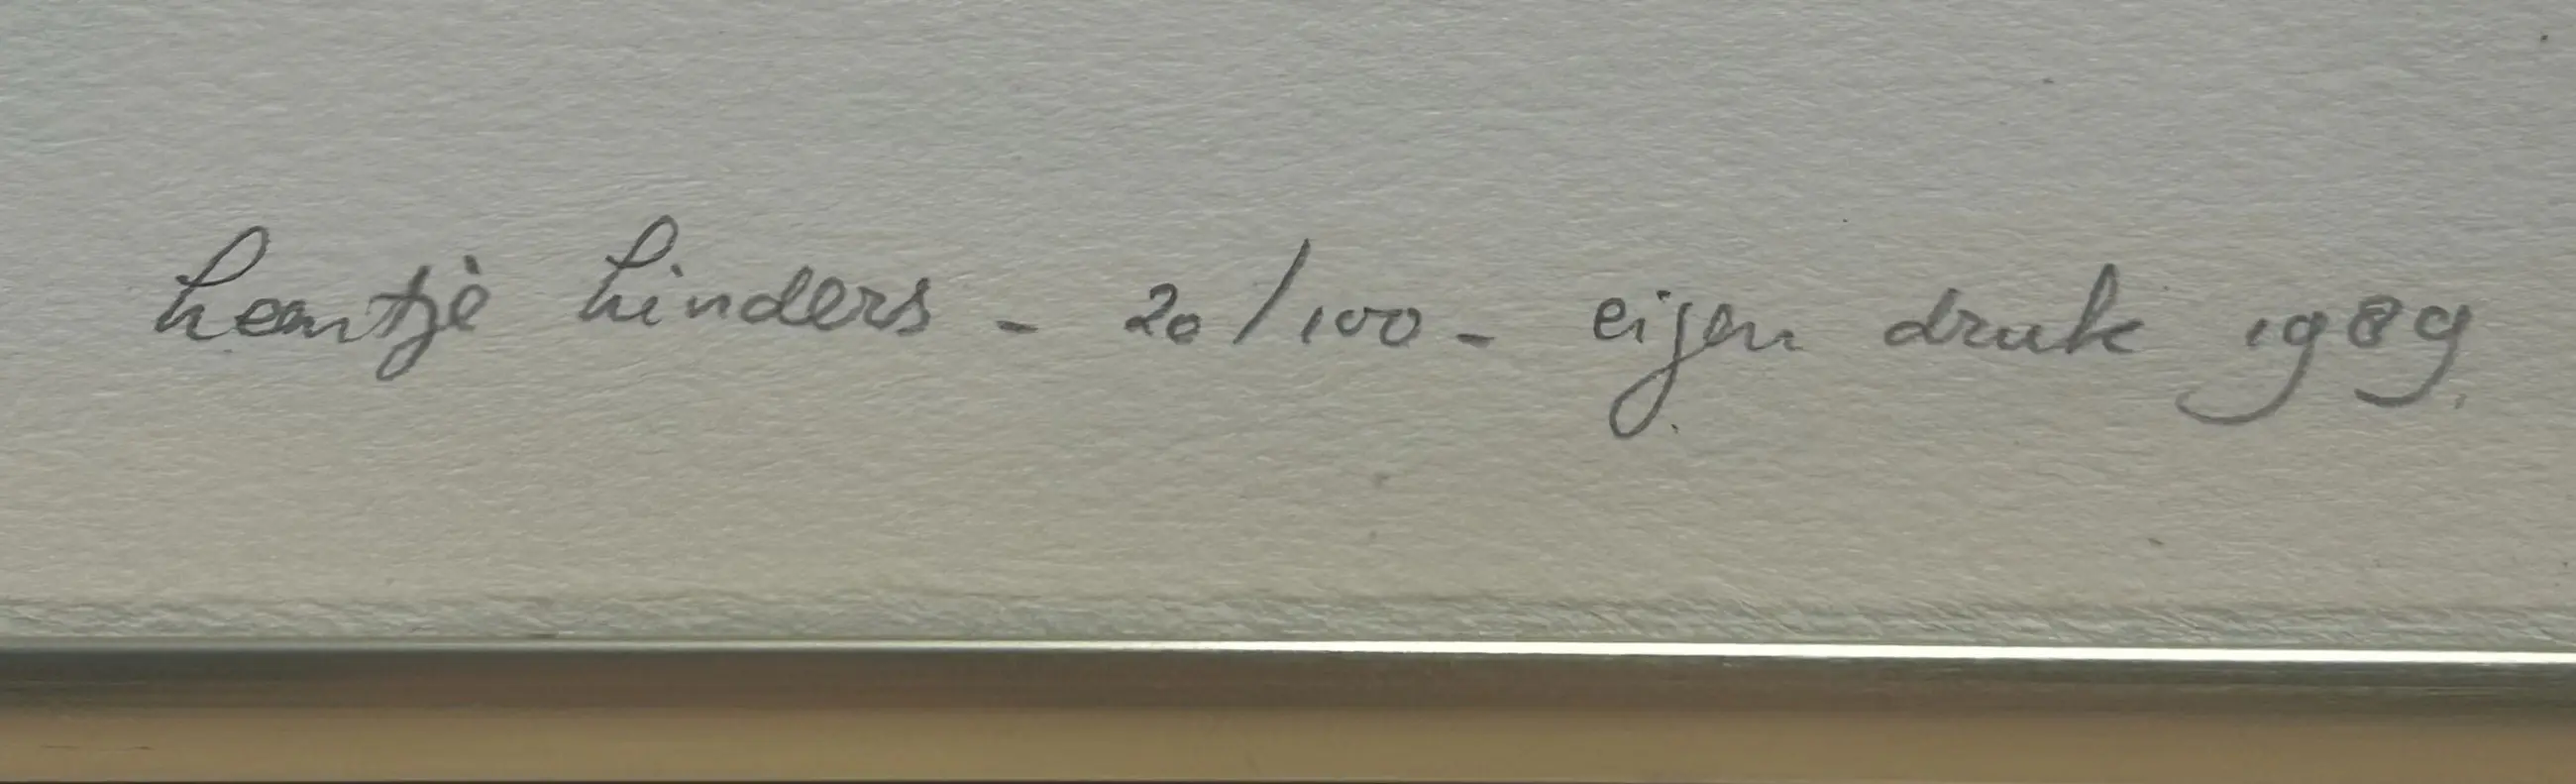 linders - 20/100 - eigen druk 1989